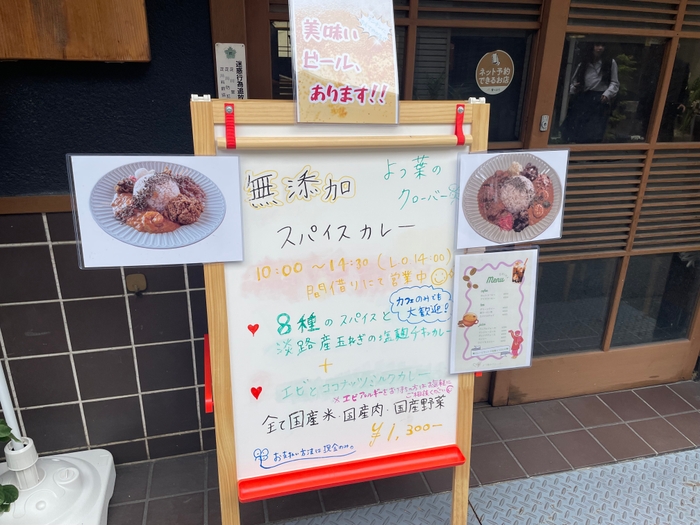 美味い
ビール、
あります!!
ネット予約
できるお店
無添加
よつ葉の
クローバー
スパイスカレー
10:00 ～14:30 (LO 14:00)
間借りにて営業中
カフェのみでも
大歓迎!
8種のスパイスと
淡路産玉ねぎの塩麹チキンカレー
+
エビとココナッツミルクカレー
※エビアレルギーを
全て国産米・国産肉・国産野菜
¥1,300-
お支払い方法は現金のみ。
Menu